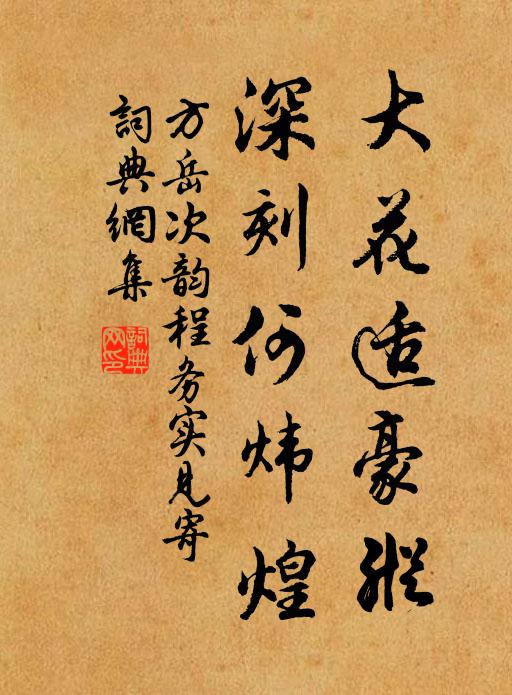 大花适豪縱
深刻何炜煌
方岳次韵程务实见寄
詞典網集
詞典网印